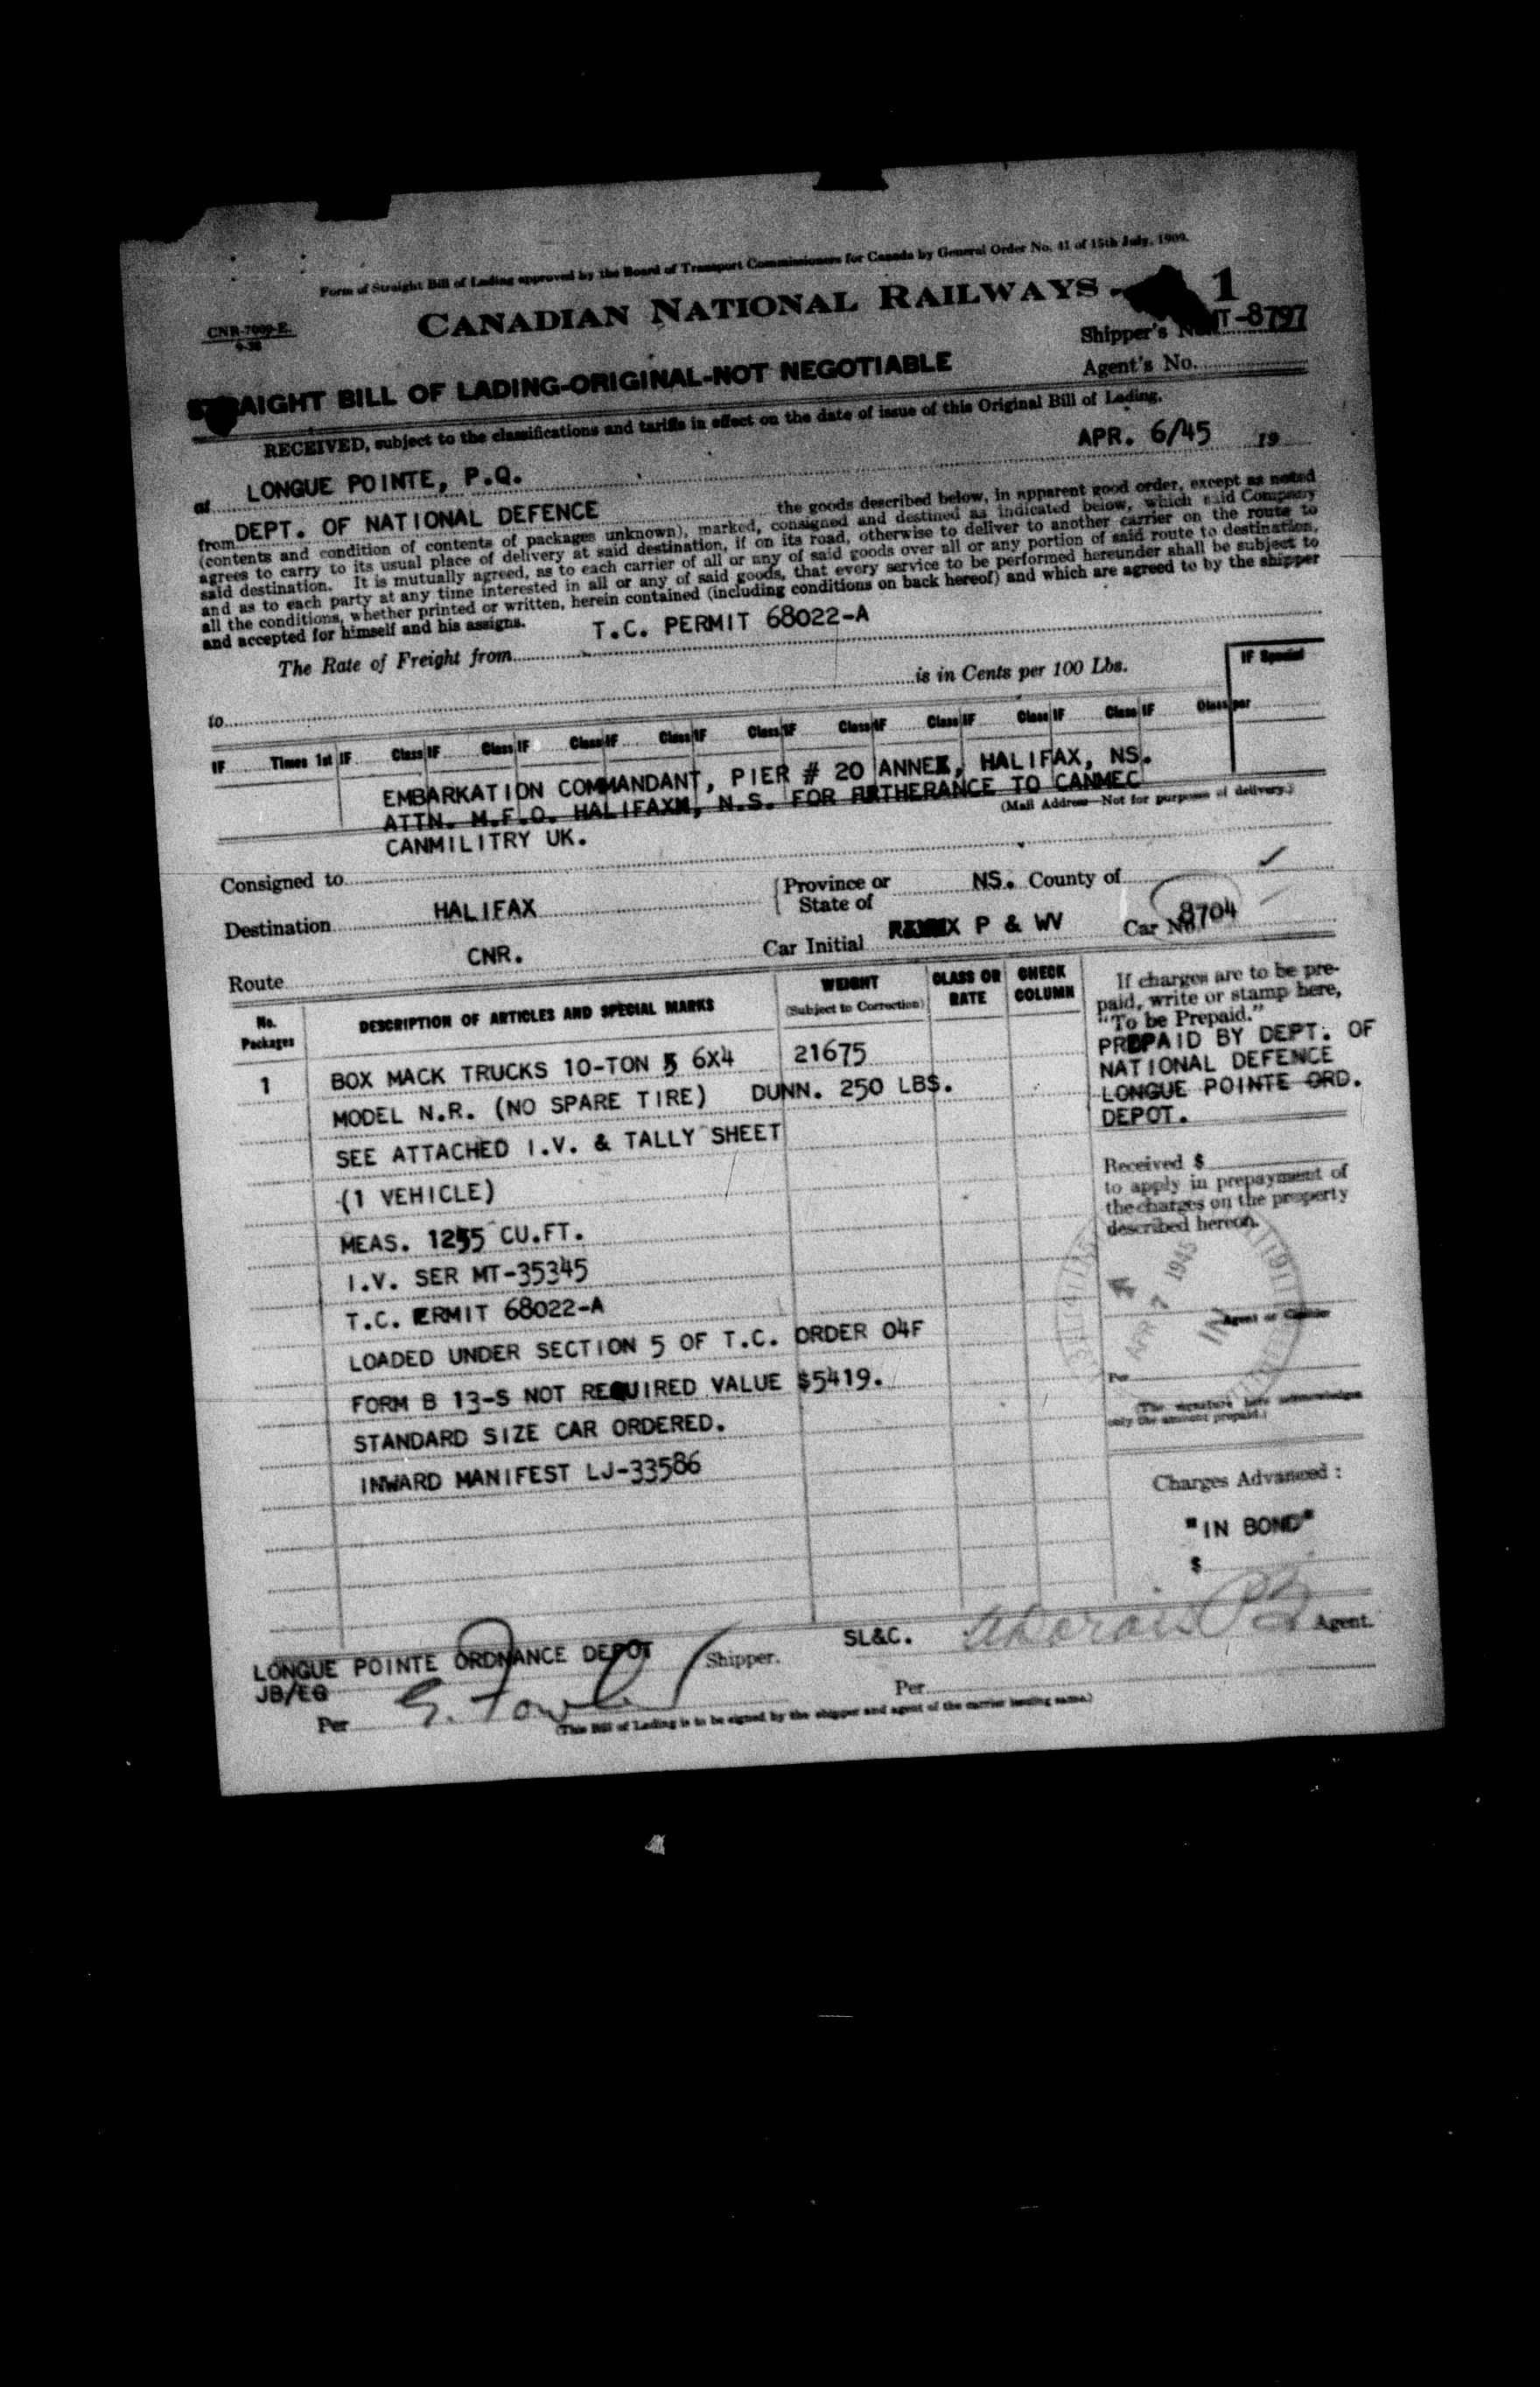 Form of Straight Bill of Lading approved by the Board of Transport Commissioners for Canada by General Order No. 41 of 15th July, 1909.
CNR-7000-E.
9-38
CANADIAN NATIONAL RAILWAYS
1
Shipper's T-8797
STRAIGHT BILL OF LADING-ORIGINAL-NOT NEGOTIABLE
Agent's No.
RECEIVED, subject to the classifications and tariffs in effect on the date of issue of this Original Bill of Lading,
APR. 6/45 19
at LONGUE POINTE, P.Q.
from DEPT. OF NATIONAL DEFENCE the goods described below, in apparent good order, except as noted
(contents and condition of contents of packages unknown), marked, consigned and destined as indicated below, which said Company
agrees to carry to its usual place of delivery at said destination, if on its road, otherwise to deliver to another carrier on the route to
said destination. It is mutually agreed, as to each carrier of all or any of said goods over all or any portion of said route to destination,
and as to each party at any time interested in all or any of said goods, that every service to be performed hereunder shall be subject to
all the conditions, whether printed or written, herein contained (including conditions on back hereof) and which are agreed to by the shipper
and accepted for himself and his assigns.
T.C. PERMIT 68022-A
The Rate of Freight from
to is in Cents per 100 Lbs.
IF Special
IF Times 1st IF Class IF Class IF Class IF Class IF Class IF Class IF Class IF Class IF Class per
EMBARKATION COMMANDANT, PIER # 20 ANNEX, HALIFAX, NS.
ATTN. M.F.O. HALIFAXM, N.S. FOR FRTHERANCE TO CANMEC
(Mail Address—Not for purposes of delivery.)
CANMILITRY UK.
Consigned to
Destination HALIFAX Province or State of NS. County of
Route CNR. Car Initial P & WV Car No. 8704
No. Packages
DESCRIPTION OF ARTICLES AND SPECIAL MARKS
WEIGHT (Subject to Correction)
CLASS OR RATE
CHECK COLUMN
If charges are to be pre-
paid, write or stamp here,
"To be Prepaid."
PREPAID BY DEPT. OF
NATIONAL DEFENCE
LONGUE POINTE ORD.
DEPOT.
1 BOX MACK TRUCKS 10-TON 6X4 21675
MODEL N.R. (NO SPARE TIRE) DUNN. 250 LBS.
SEE ATTACHED I.V. & TALLY SHEET
(1 VEHICLE)
MEAS. 1255 CU.FT.
I.V. SER MT-35345
T.C. ERMIT 68022-A
LOADED UNDER SECTION 5 OF T.C. ORDER 04F
FORM B 13-S NOT REQUIRED VALUE $5419.
STANDARD SIZE CAR ORDERED.
INWARD MANIFEST LJ-33586
Received $
to apply in prepayment of
the charges on the property
described hereon.
APR 7 1945
Agent or Cashier
Per
(The signature here acknowledges
only the amount prepaid.)
Charges Advanced :
"IN BOND"
$
SL&C. Agent.
LONGUE POINTE ORDNANCE DEPOT Shipper.
JB/EG
Per
Per
(This Bill of Lading is to be signed by the shipper and agent of the carrier issuing same.)